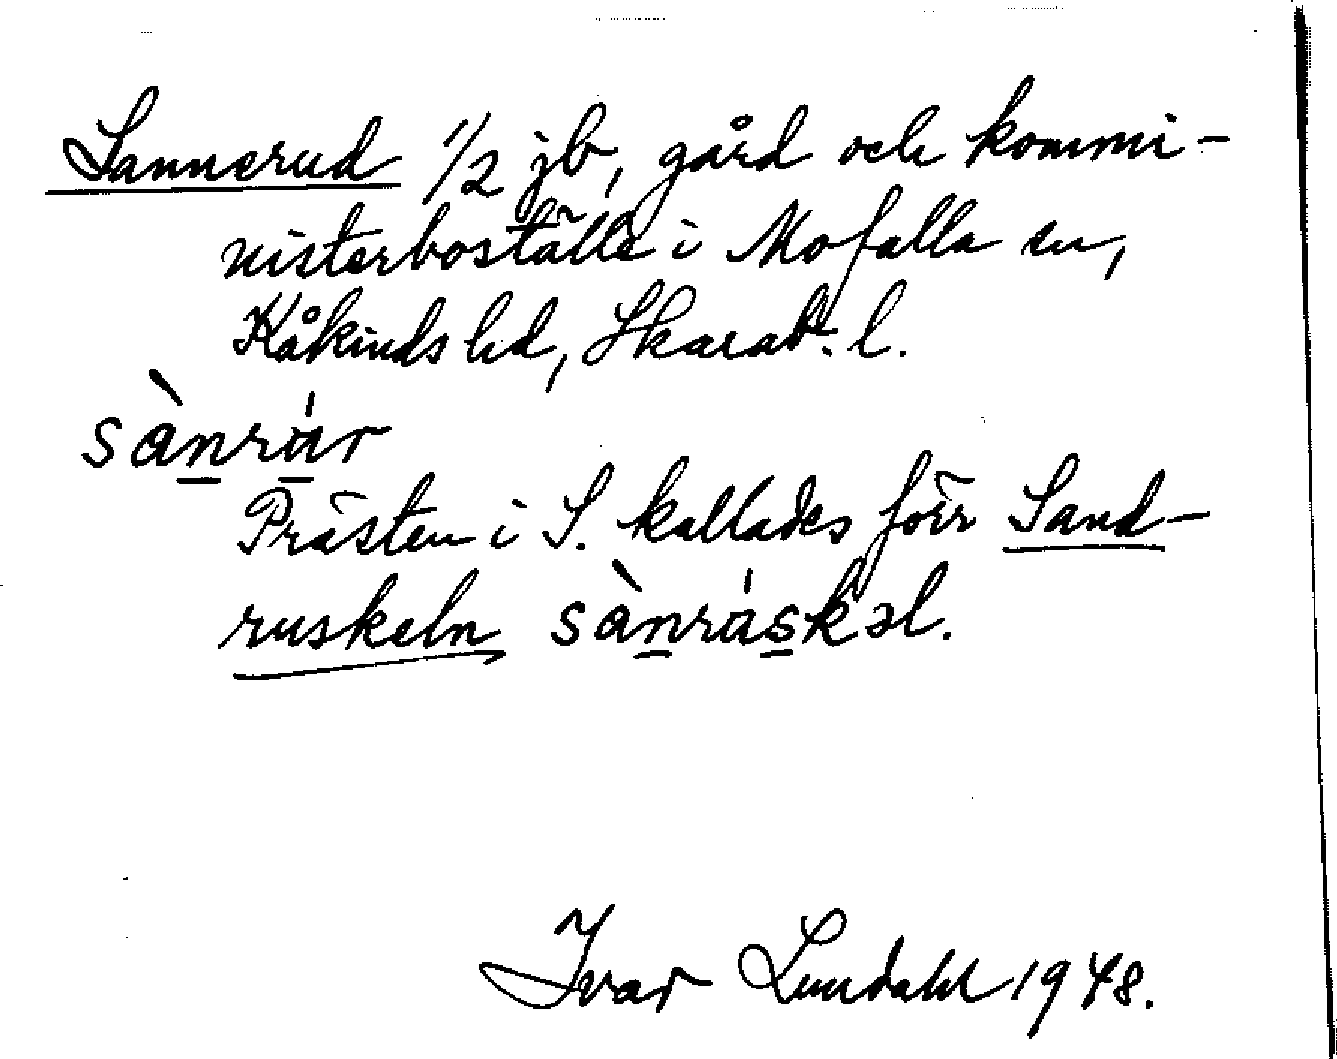 Sannerud 1/2 jb, gård och kommi-
nisterboställe i Mofalla sn,
Kåkinds hd, Skarab. l.
sànrár
Prästen i S. kallades förr Sand-
ruskeln sànráskəl.
Ivar Lundahl 1948.